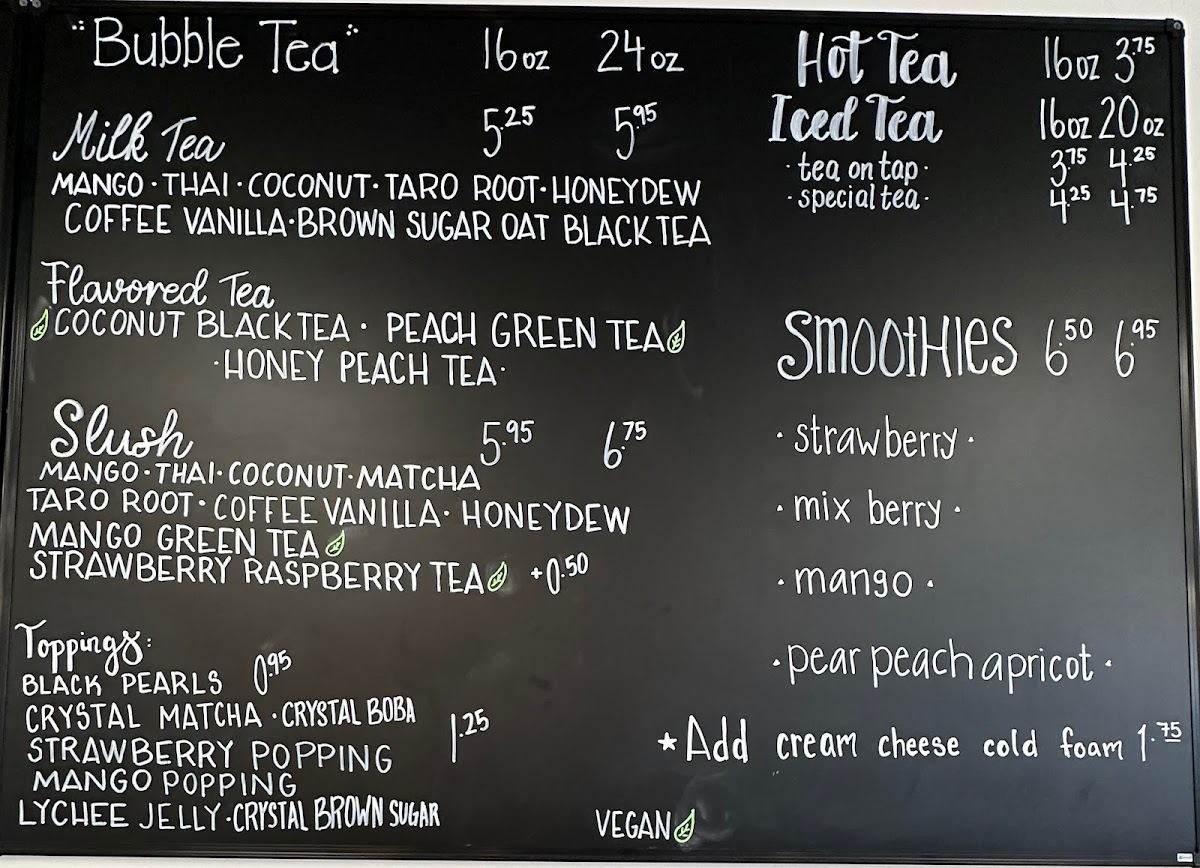 "Bubble Tea" 16 oz 24 oz
Milk Tea 5.25 5.95
MANGO · THAI · COCONUT · TARO ROOT · HONEYDEW
COFFEE VANILLA · BROWN SUGAR OAT BLACK TEA
Flavored Tea
COCONUT BLACK TEA · PEACH GREEN TEA
· HONEY PEACH TEA ·
Slush 5.95 6.75
MANGO · THAI · COCONUT · MATCHA
TARO ROOT · COFFEE VANILLA · HONEYDEW
MANGO GREEN TEA
STRAWBERRY RASPBERRY TEA +0.50
Toppings:
BLACK PEARLS 0.95
CRYSTAL MATCHA · CRYSTAL BOBA
STRAWBERRY POPPING 1.25
MANGO POPPING
LYCHEE JELLY · CRYSTAL BROWN SUGAR
Hot Tea 16 oz 3.75
Iced Tea 16 oz 20 oz
· tea on tap · 3.75 4.25
· special tea · 4.25 4.75
SmOOtHIES 6.50 6.95
· strawberry ·
· mix berry ·
· mango ·
· pear peach apricot ·
* Add cream cheese cold foam 1.75
VEGAN